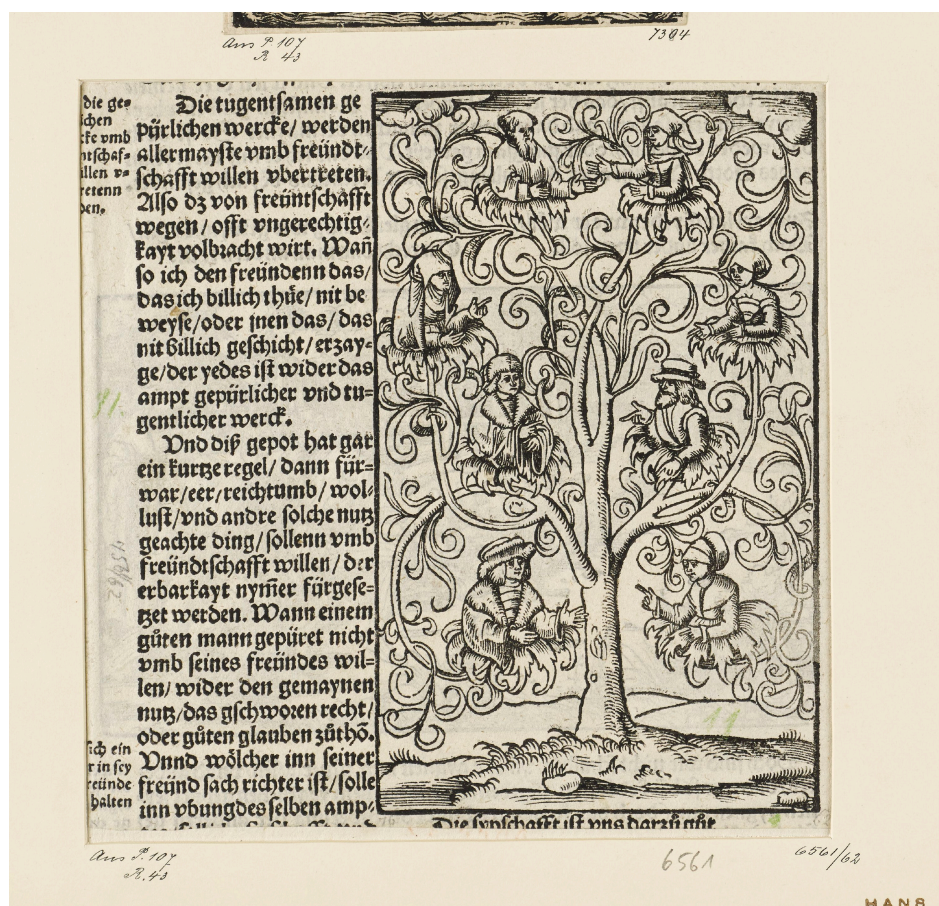 Aus P. 107
R 43
7304
die ge=
chen
cke vmb
ntschaf=
illen v=
retenn
den.
Die tugentsamen ge
pürlichen wercke/ werden
allermayste vmb freündt-
schafft willen vbertreten.
Also dz von freüntschafft
wegen/ offt vngerechtig-
kayt volbracht wirt. Wañ
so ich den freündenn das/
das ich billich thüe/ nit be
weyse/oder jnen das/ das
nit billich geschicht/ erzay-
ge/der yedes ist wider das
ampt gepürlicher vnd tu=
gentlicher werck.
Vnd diß gepot hat gar
ein kurtze regel/ dann für=
war/eer/reichtumb/ wol-
lust/vnd andre solche nutz
geachte ding/sollenn vmb
freündtschafft willen/ der
erbarkayt nym̄er fürgese=
tzet werden. Wann einem
gůten mann gepüret nicht
vmb seines freündes wil=
len/ wider den gemaynen
nutz/das gschworen recht/
oder gůten glauben zůthõ.
Vnnd wölcher inn seiner
freünd sach richter ist/solle
inn vbung des selben amp-
sich ein
r in sey
reünde
halten
11.
4536/62
11
Die sypschafft ist vns darzů gůt
Aus P. 107
R. 43
6561
6561/62
HANS